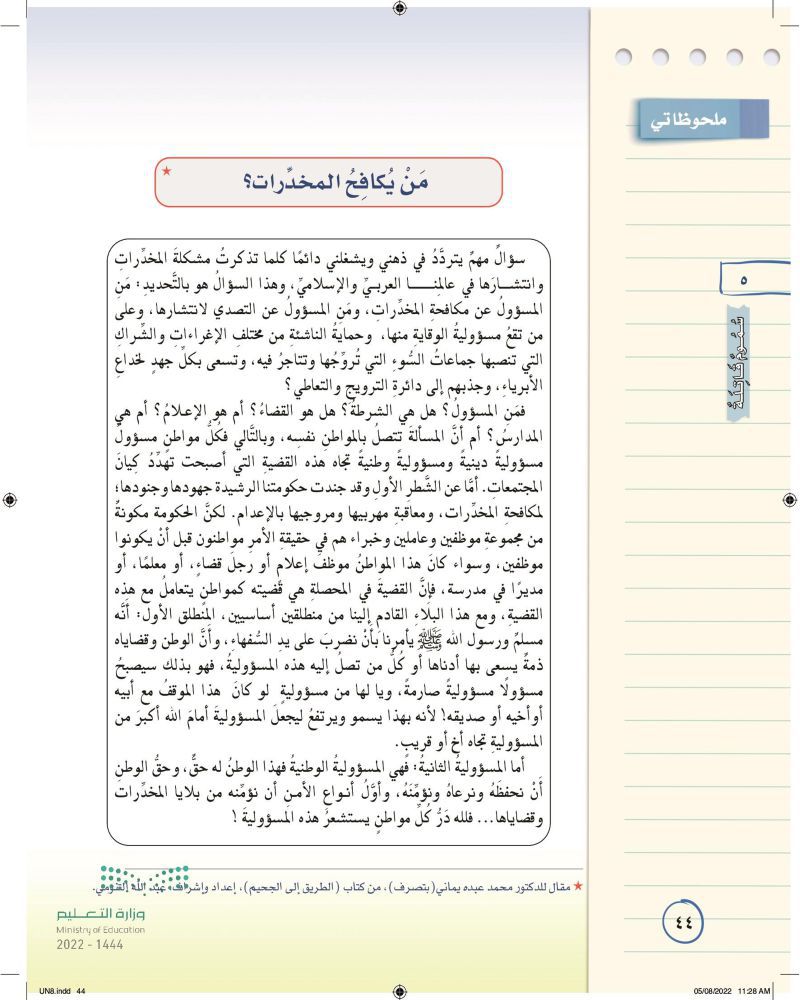 ملحوظاتي
٥
سُمُومٌ قَاتِلَةٌ
مَنْ يُكافِحُ المخدِّرات؟
سؤالٌ مهمٌ يتردَّدُ في ذهني ويشغلني دائمًا كلما تذكرتُ مشكلةَ المخدِّراتِ
وانتشـارَها في عالمِنـــا العربـيِّ والإسلاميِّ، وهذا السؤالُ هو بالتَّحديدِ: مَنِ
المسؤولُ عن مكافحةِ المخدِّراتِ، ومَن المسؤولُ عن التصدي لانتشارها، وعلى
من تقعُ مسؤوليةُ الوقايةِ منها، وحمايةُ الناشئةِ من مختلفِ الإغراءاتِ والشِّراكِ
التي تنصبها جماعاتُ السُّوءِ التي تُروِّجُها وتتاجرُ فيه، وتسعى بكلِّ جهدٍ لخداعِ
الأبرياءِ، وجذبهم إلى دائرةِ الترويجِ والتعاطي؟
فمَنِ المسؤولُ؟ هل هي الشرطةُ؟ هل هو القضاءُ؟ أم هو الإعلامُ؟ أم هي
المدارسُ؟ أم أنَّ المسألةَ تتصلُ بالمواطنِ نفسِه، وبالتَّالي فكلُّ مواطنٍ مسؤولٌ
مسؤوليةً دينيةً ومسؤوليةً وطنيةً تجاه هذه القضيةِ التي أصبحت تهدِّدُ كيانَ
المجتمعاتِ. أمَّا عن الشَّطرِ الأولِ وقد جندت حكومتنا الرشيدة جهودها وجنودها؛
لمكافحةِ المخدِّرات، ومعاقبةِ مهربيها ومروجيها بالإعدامِ. لكنَّ الحكومة مكونةٌ
من مجموعةِ موظفين وعاملين وخبراء هم في حقيقةِ الأمرِ مواطنون قبل أنْ يكونوا
موظفين، وسواء كانَ هذا المواطنُ موظفَ إعلامٍ أو رجلَ قضاءٍ، أو معلمًا، أو
مديرًا في مدرسة، فإنَّ القضيةَ في المحصلةِ هي قضيته كمواطنٍ يتعاملُ مع هذه
القضية، ومع هذا البلاءِ القادمِ إلينا من منطلقين أساسيين، المُنطلق الأول: أنَّه
مسلمٌ ورسول الله ﷺ يأمرنا بأنْ نضربَ على يدِ السُّفهاءِ، وأنَّ الوطن وقضاياه
ذمةٌ يسعى بها أدناها أو كلُّ من تصلُ إليه هذه المسؤوليةُ، فهو بذلك سيصبحُ
مسؤولًا مسؤوليةً صارمةً، ويا لها من مسؤوليةٍ لو كانَ هذا الموقفُ مع أبيه
أوأخيه أو صديقه! لأنه بهذا يسمو ويرتفعُ ليجعلَ المسؤوليةَ أمامَ الله أكبرَ من
المسؤوليةِ تجاه أخ أو قريبٍ.
أما المسؤوليةُ الثانيةُ: فهي المسؤوليةُ الوطنيةُ فهذا الوطنُ له حقٌّ، وحقُّ الوطنِ
أَنْ نحفظَهُ ونرعاهُ ونؤمِّنَهُ، وأوَّلُ أنـواعِ الأمـنِ أن نؤمِّنه من بلايا المخدِّرات
وقضاياها... فلله دَرُّ كُلِّ مواطنٍ يستشعرُ هذه المسؤوليةَ !
★ مقال للدكتور محمد عبده يماني(بتصرف)، من كتاب (الطريق إلى الجحيم)، إعداد وإشراف: عبد الله
وزارة التعـــليم
Ministry of Education
2022 - 1444
٤٤
UN8.indd 44
05/08/2022 11:28 AM